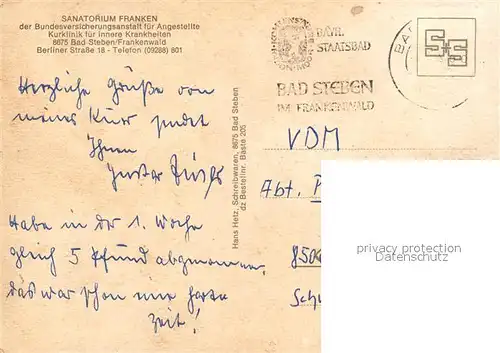 SANATORIUM FRANKEN
der Bundesversicherungsanstalt für Angestellte
Kurklinik für innere Krankheiten
8675 Bad-Steben/Frankenwald
Berliner Straße 18 - Telefon (09288) 801
BAYER.
STAATSBAD
BAD STEBEN
IM FRANKENWALD
BA
Herzliche Grüße von
meiner Kur sendet
Ihnen
Habe in der 1. Woche
gleich 5 Pfund abgenommen,
das war schon eine harte
Zeit!
Hans Hetz, Schreibwaren, 8675 Bad Steben
dz Bestellnr. Baste 205
VDM
Abt.
850
Sch
privacy protection
Datenschutz